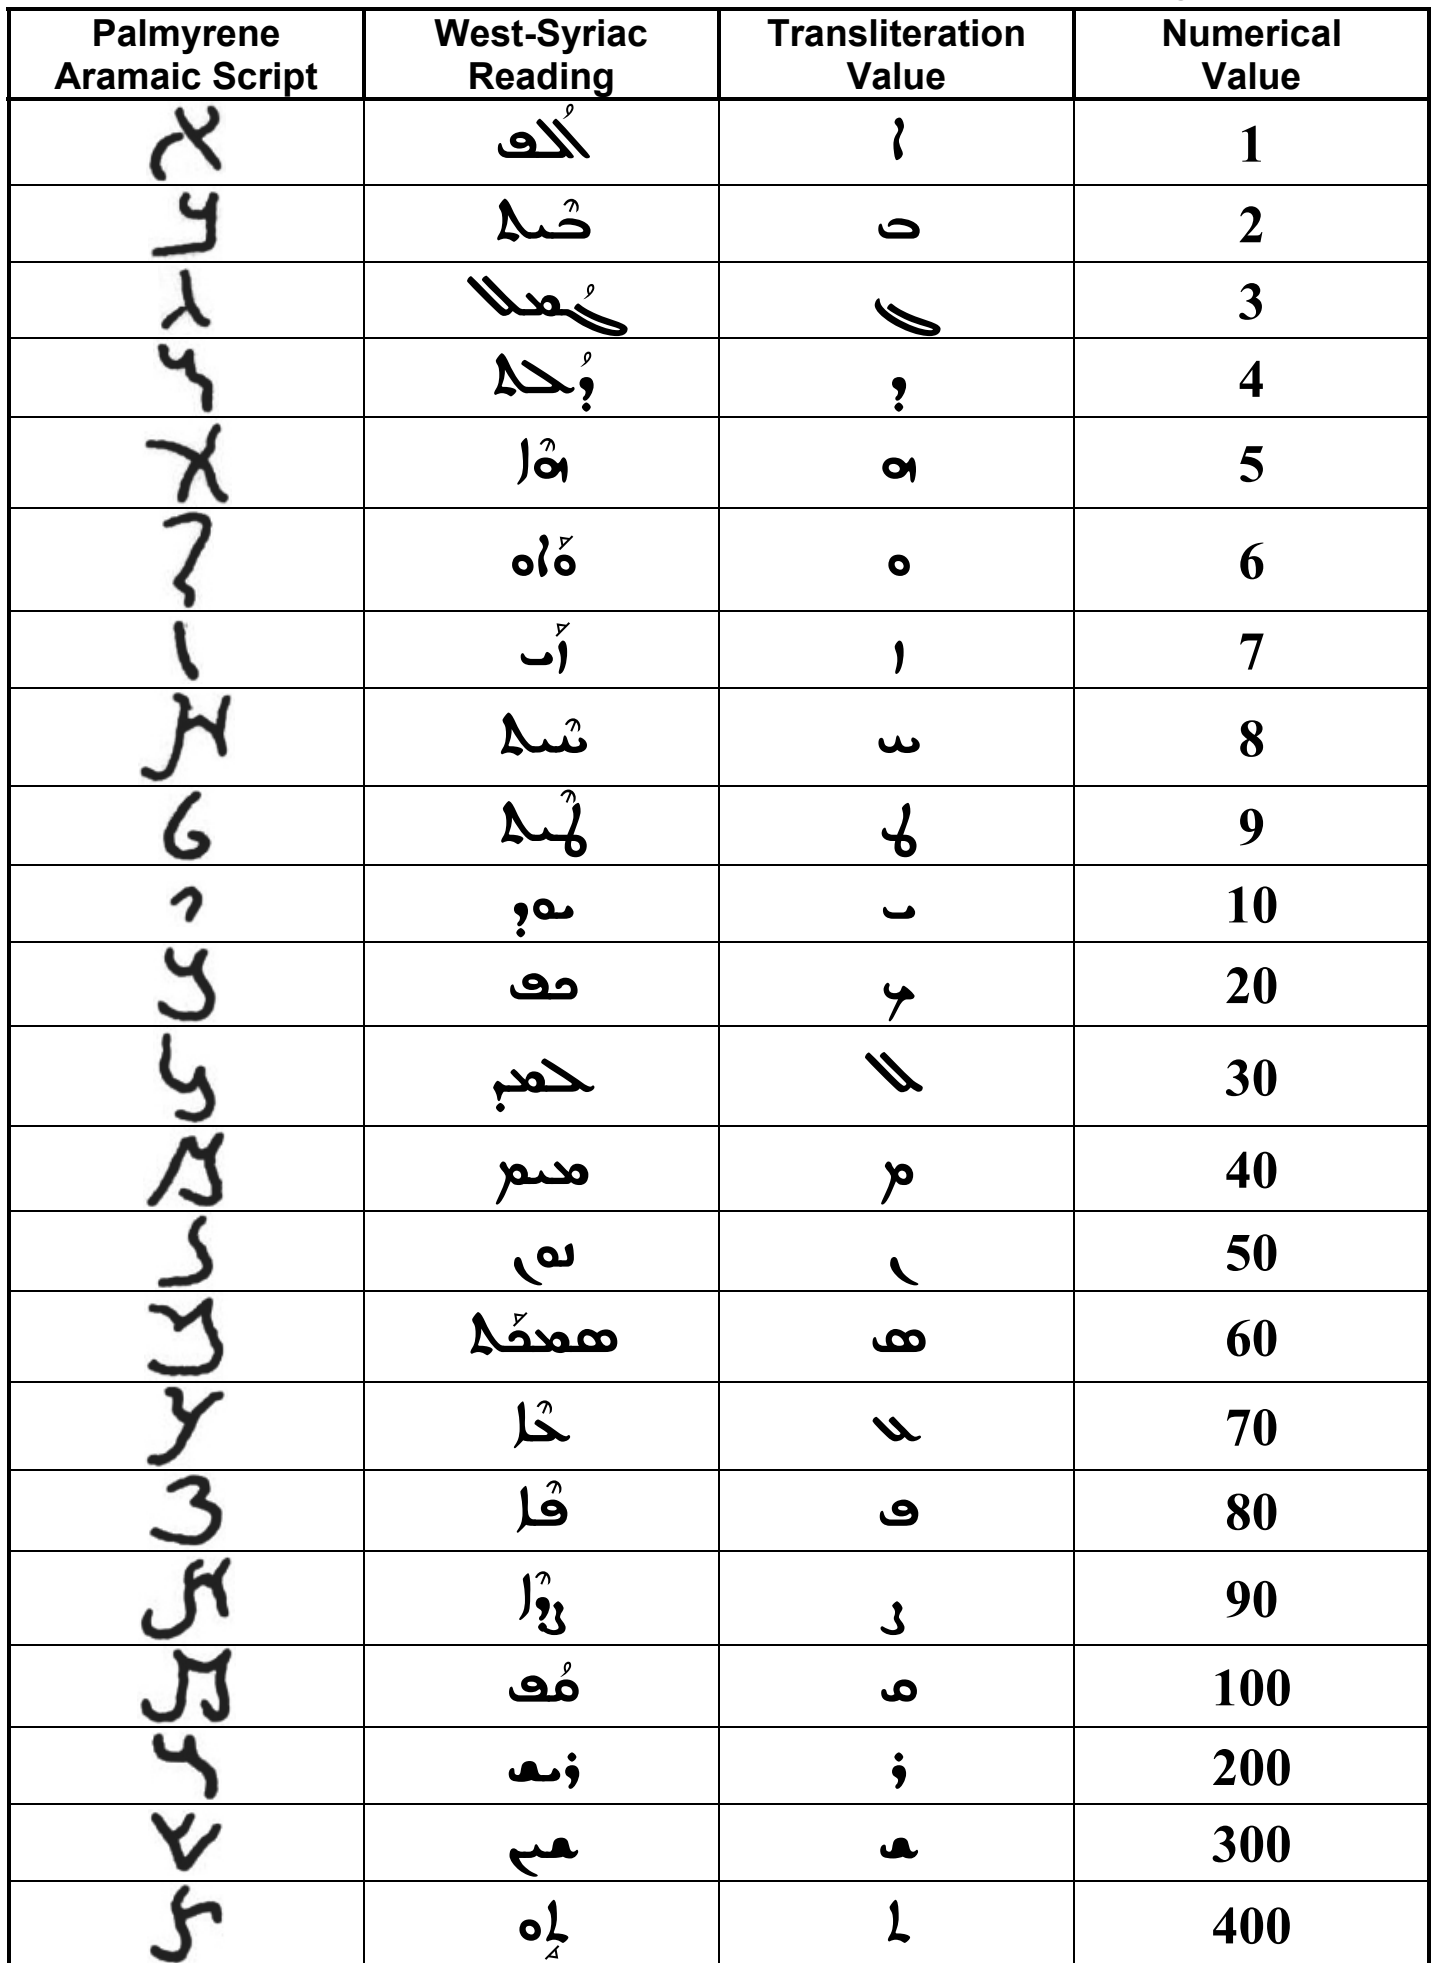 Palmyrene Aramaic Script West-Syriac Reading Transliteration Value Numerical Value
𐡠 ܐܳܠܦ ܐ 1
𐡡 ܒܶܝܬ ܒ 2
𐡢 ܓܳܡܠ ܓ 3
𐡣 ܕܳܠܬ ܕ 4
𐡤 ܗܶܐ ܗ 5
𐡥 ܘܰܐܘ ܘ 6
𐡦 ܙܰܝ ܙ 7
𐡧 ܚܶܝܬ ܚ 8
𐡨 ܛܶܝܬ ܛ 9
𐡩 ܝܘܕ ܝ 10
𐡪 ܟܦ ܟ 20
𐡫 ܠܡܕ ܠ 30
𐡬 ܡܝܡ ܡ 40
𐡮 ܢܘܢ ܢ 50
𐡯 ܣܡܟܰܬ ܣ 60
𐡰 ܥܶܐ ܥ 70
𐡱 ܦܶܐ ܦ 80
𐡲 ܨܕܶܐ ܨ 90
𐡳 ܩܳܦ ܩ 100
𐡴 ܪܝܫ ܪ 200
𐡵 ܫܝܢ ܫ 300
𐡶 ܬܱܘ ܬ 400